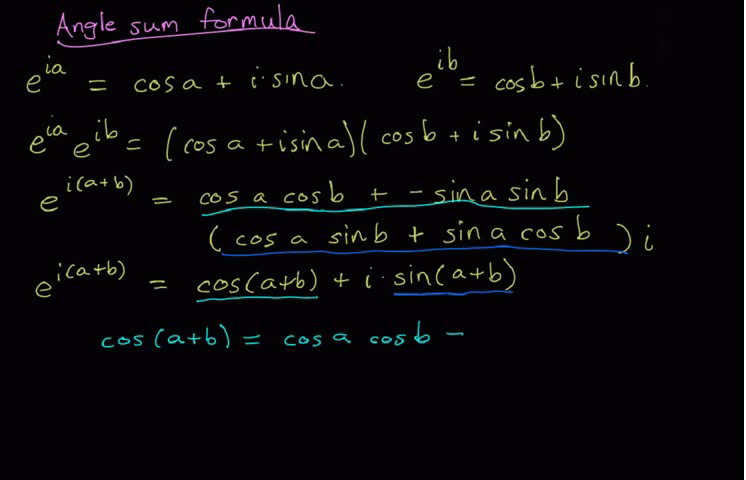 Angle sum formula
e^{ia} = cos a + i·sin a. e^{ib} = cos b + i sin b.
e^{ia} e^{ib} = (cos a + i sin a)(cos b + i sin b)
e^{i(a+b)} = cos a cos b + - sin a sin b
(cos a sin b + sin a cos b) i
e^{i(a+b)} = cos(a+b) + i· sin(a+b)
cos(a+b) = cos a cos b -